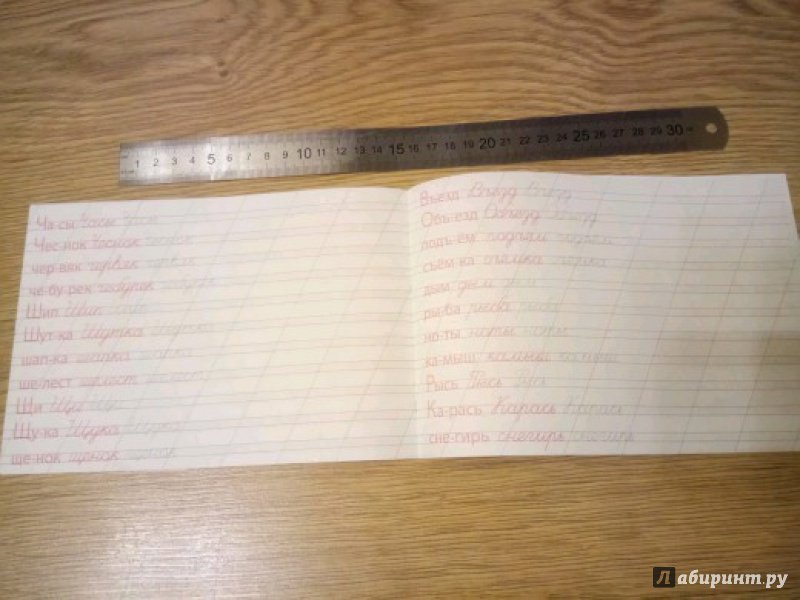 1 2 3 4 5 6 7 8 9 10 11 12 13 14 15 16 17 18 19 20 21 22 23 24 25 26 27 28 29 30
Ча-сы Часы Часы
Чес-нок Чеснок чеснок
чер-вяк червяк червяк
че-бу-рек чебурек чебурек
Шип Шип Шип
Шут-ка Шутка шутка
шап-ка шапка шапка
ше-лест шелест шелест
Щи Щи Щи
Щу-ка Щука Щука
ще-нок щенок щенок
Въезд Въезд Въезд
Объ-езд Объезд объезд
подъ-ём подъём подъём
съём-ка съёмка съёмка
дым дым дым
ры-ба рыба рыба
но-ты ноты ноты
ка-мыш камыш камыш
Рысь Рысь Рысь
Ка-рась Карась Карась
сне-гирь снегирь снегирь
Лабиринт.ру